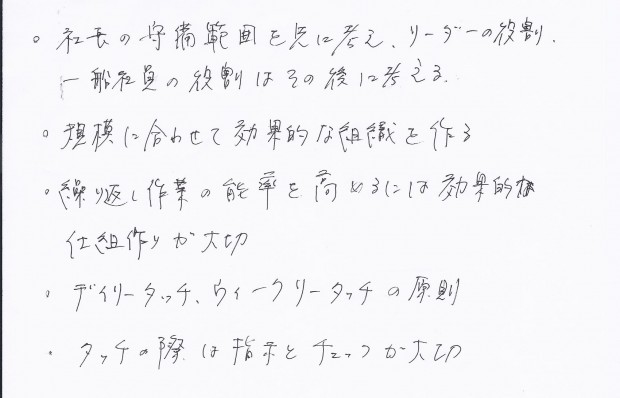 。社長の守備範囲を先に考え、リーダーの役割.
一般社員の役割はその後に考える.
。規模に合わせて効果的な組織を作る
・繰り返し作業の能率を高めるには効果的な
仕組作りが大切
・デイリータッチ、ウィークリータッチの原則
・タッチの際は指示とチェックが大切